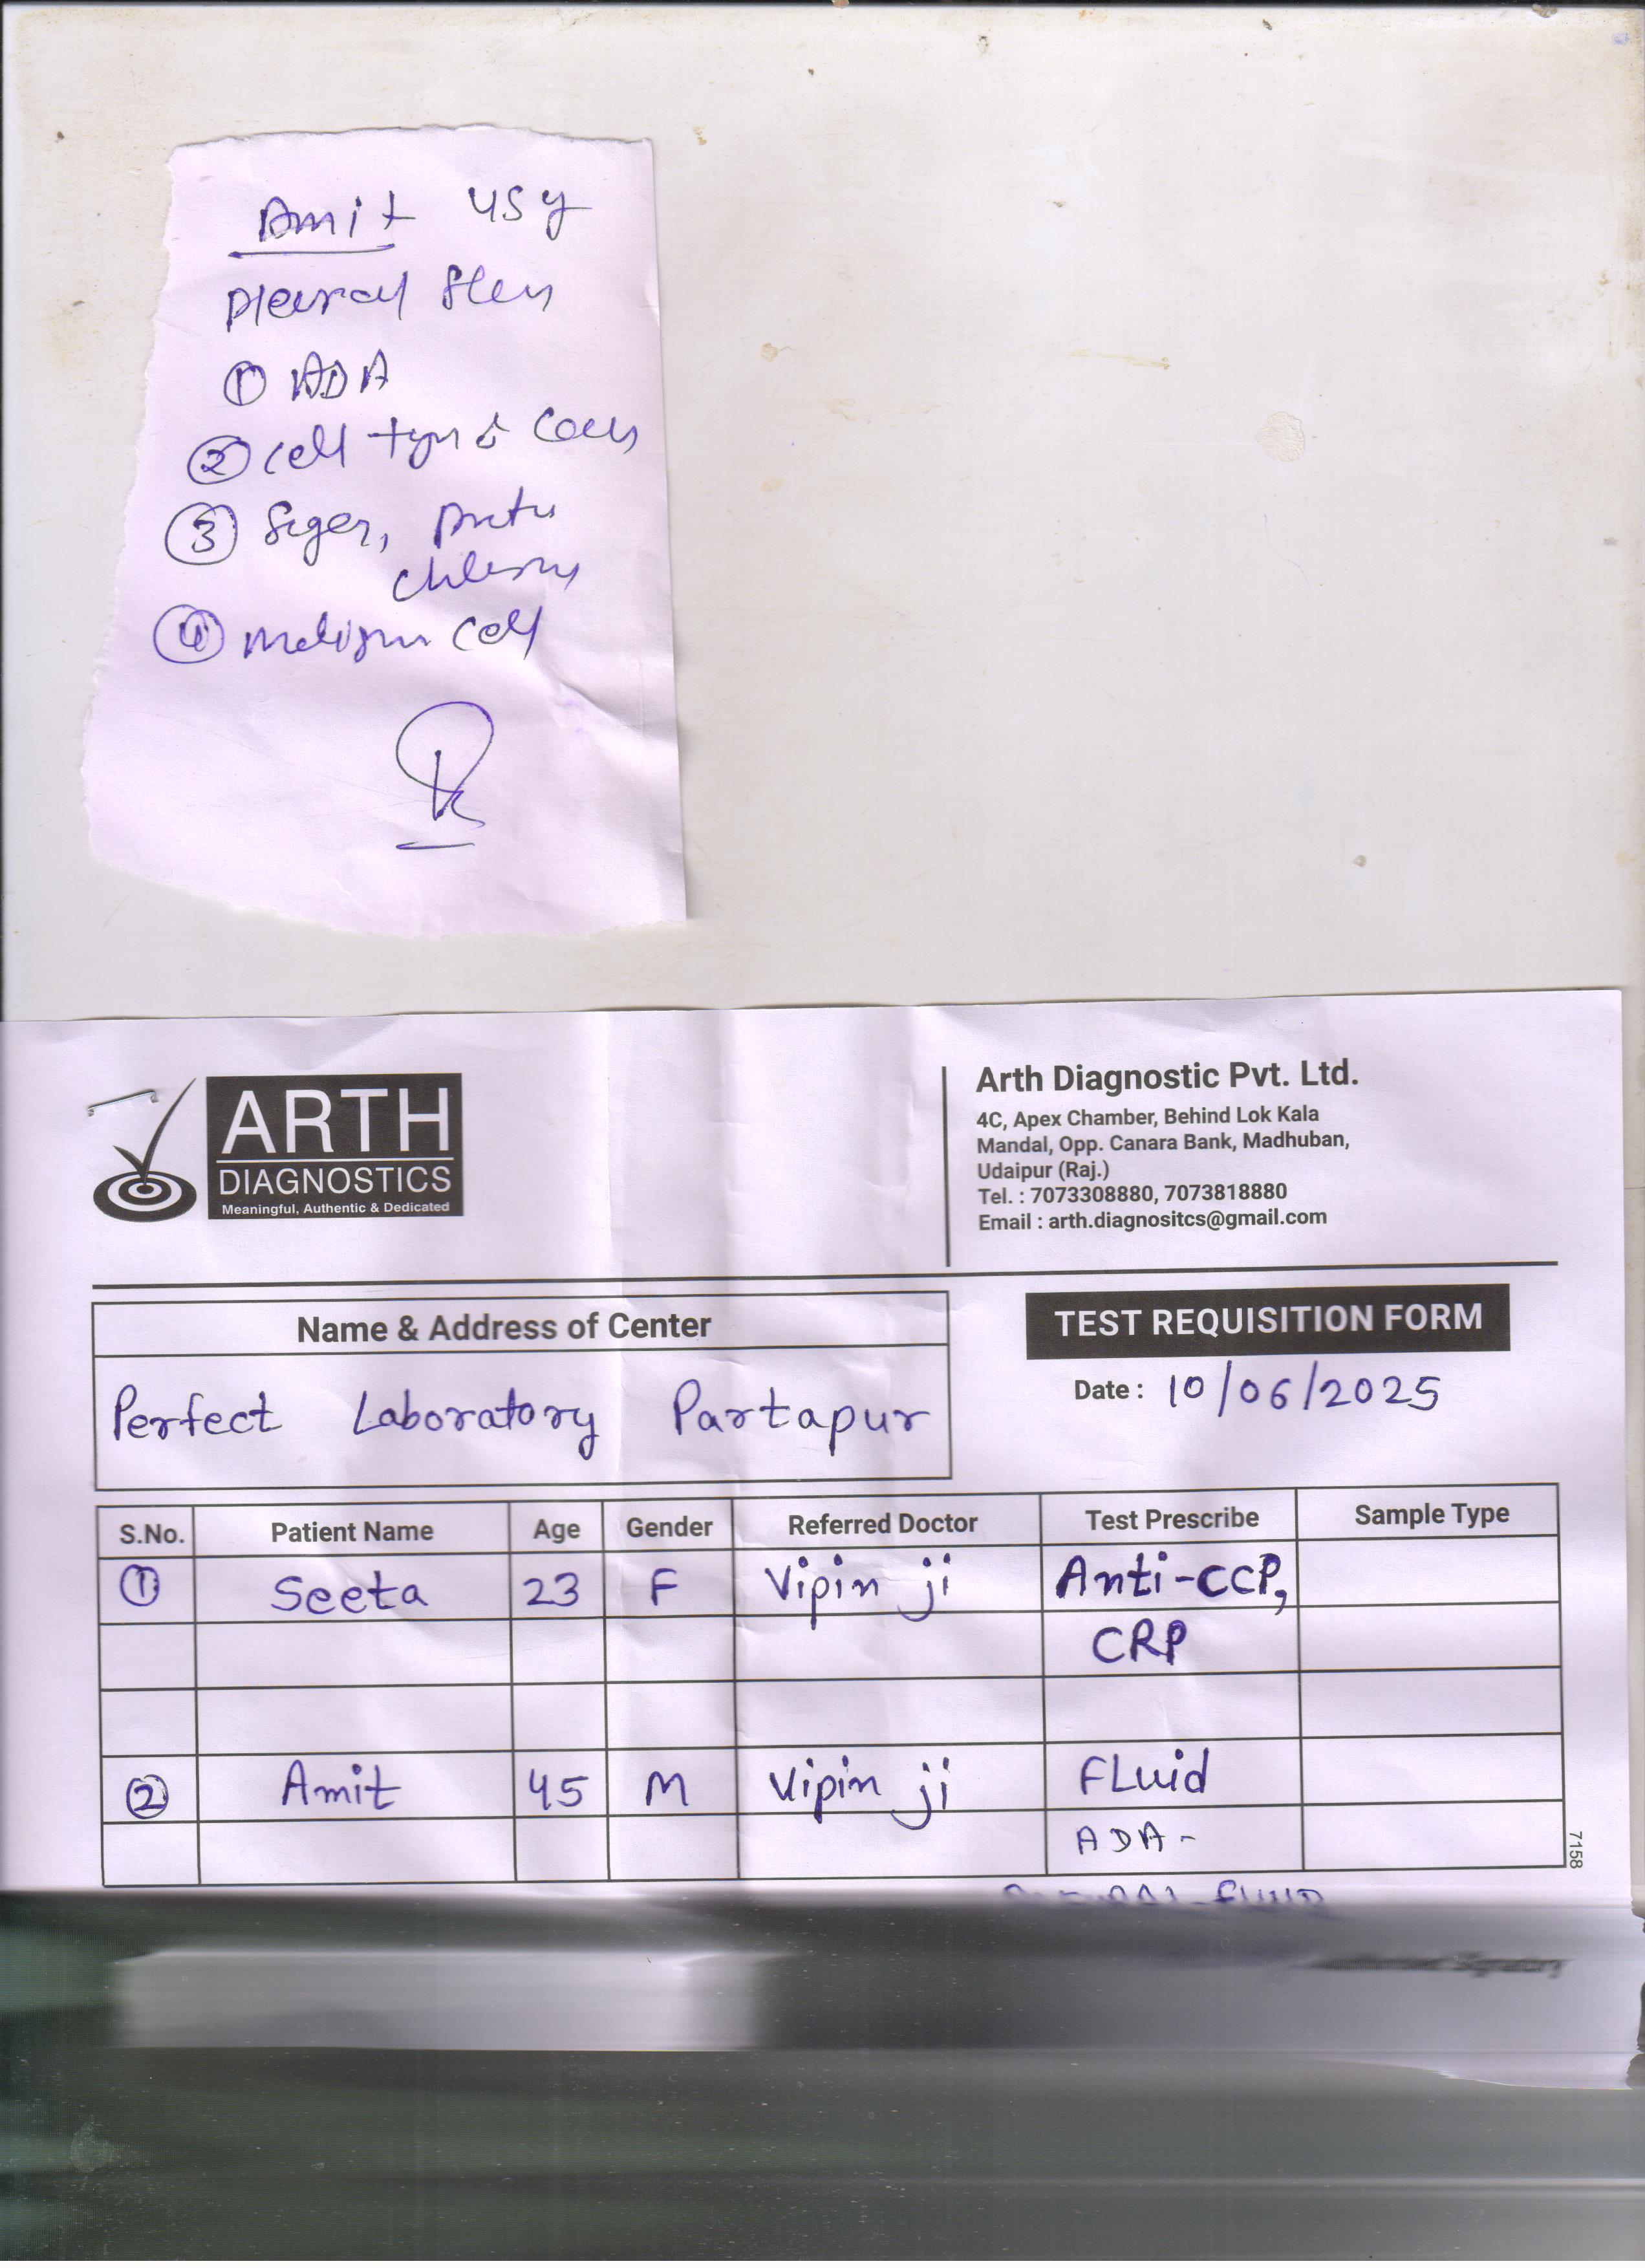 Amit 45y
Pleural
① ADA
② Cell type &
③ Suger,
④ Cell
ARTH
DIAGNOSTICS
Meaningful, Authentic & Dedicated
Arth Diagnostic Pvt. Ltd.
4C, Apex Chamber, Behind Lok Kala
Mandal, Opp. Canara Bank, Madhuban,
Udaipur (Raj.)
Tel. : 7073308880, 7073818880
Email : arth.diagnositcs@gmail.com
Name & Address of Center
TEST REQUISITION FORM
Perfect Laboratory Partapur
Date : 10/06/2025
S.No. Patient Name Age Gender Referred Doctor Test Prescribe Sample Type
① Seeta 23 F Vipin ji Anti-CCP,
CRP
② Amit 45 M Vipin ji FLuid
ADA -
7158
FLUID
Signatory